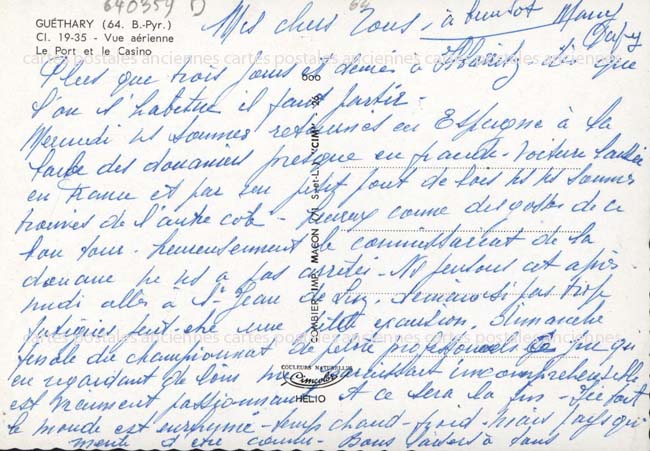 640354 D
64
GUÉTHARY (64. B.-Pyr.)
Cl. 19-35 - Vue aérienne
Le Port et le Casino
Mes chers Tous, à bientôt Mamy
Dafy
cartes postales anciennes cartes postales anciennes cartes postales anciennes
Plus que trois jours et demies à Biarritz dès que
l'on s'habitue il faut partir -
Mercredi ns sommes retournés en Espagne à la
barbe des douaniers presque en fraude - Voiture laissée
en France et par un petit pont de bois ns ns sommes
trouvés de l'autre côté - heureux comme des gosses de ce
bon tour - heureusement le commissariat de la
douane ne ns a pas arrêtés - Ns pensons cet après
midi aller à St Jean de Luz. Demain si pas trop
fatigués peut-être une petite excursion. Dimanche
finale du championnat de pelote professionnels ce qui
en regardant de loin me paraissait incompréhensible
est vraiment passionnant. À ce sera la fin - Ici tout
le monde est enrhumé - temps chaud - froid - mais pays qui
mérite d'être connu - Bons baisers à tous
COMBIER IMP. MACON (71 S.-et-L.) "CIM"
COULEURS NATURELLES
Cimcolor
HELIO